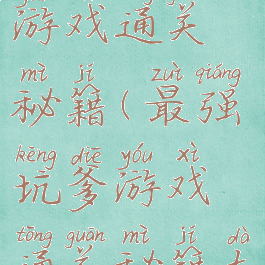 游戏通关
mì jí zuì qiáng
秘籍(最强
kēng diē yóu xì
坑爹游戏
tōng guān mì jí dà